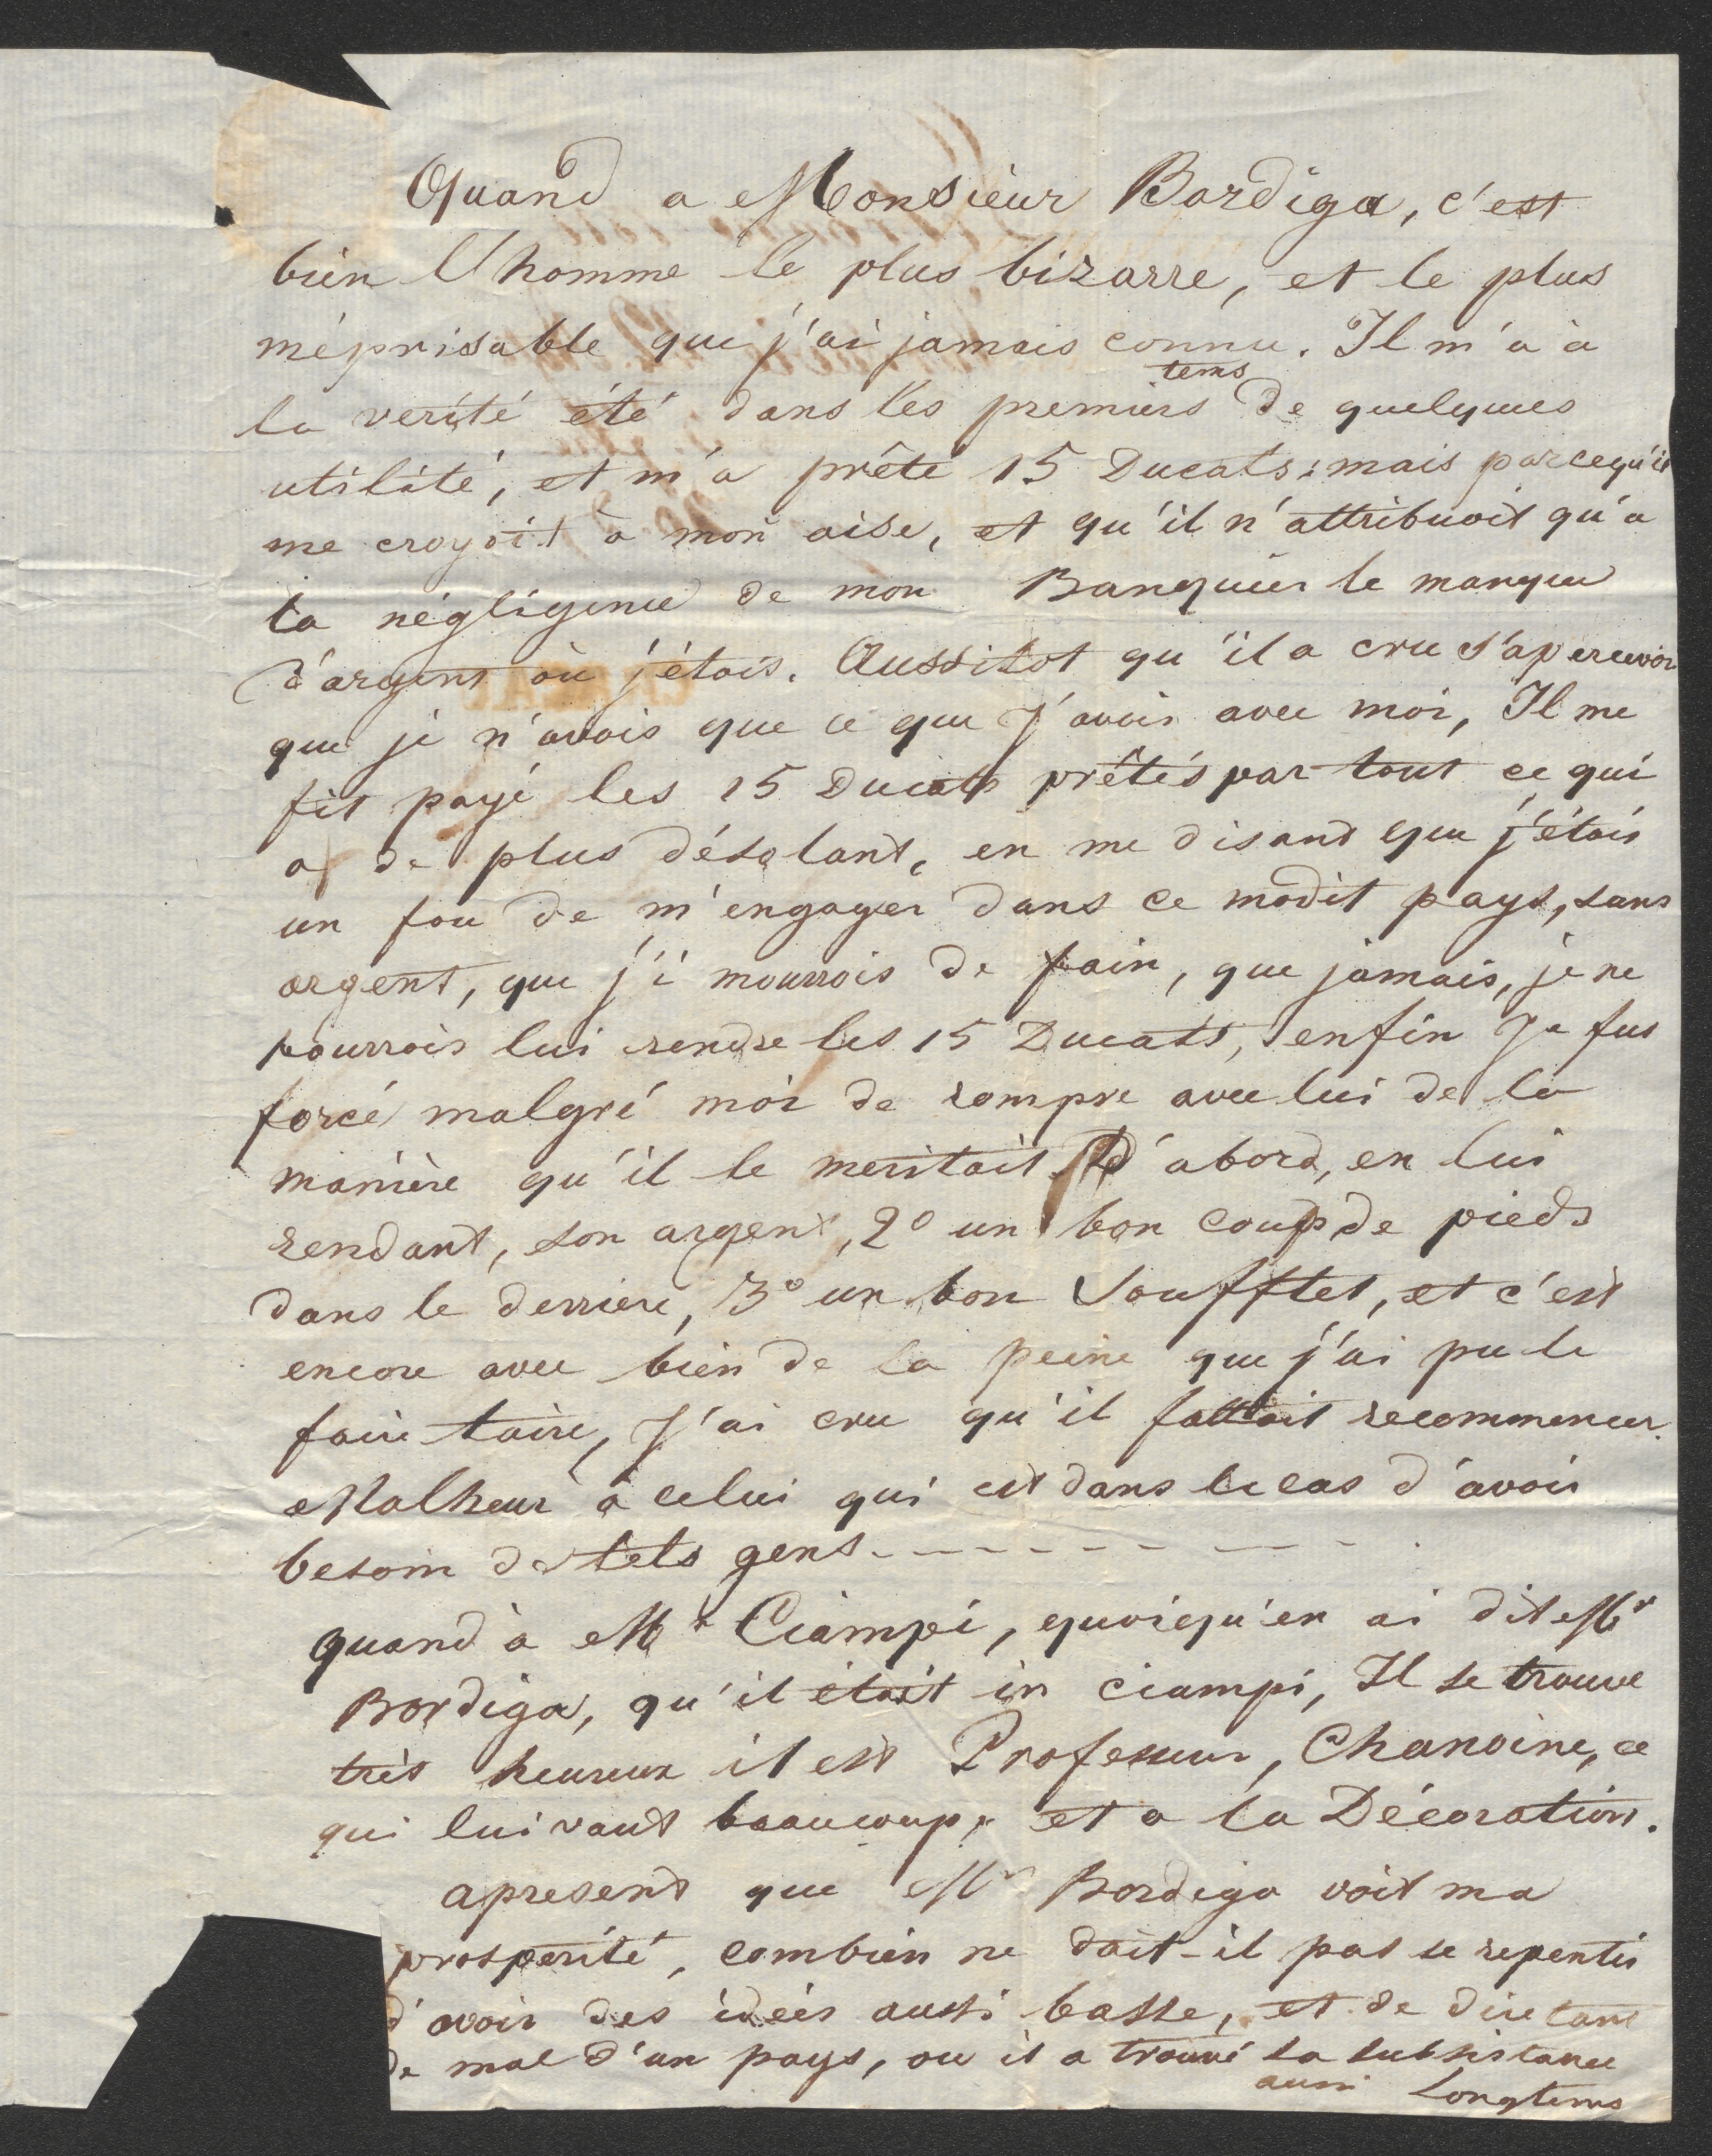 Quand a Monsieur Bordiga, c'est
bien l'homme le plus bizarre, et le plus
méprisable que j'ai jamais connu. Il m'a à
tems
la verité été dans les premiers de quelques
utilité, et m'a prêté 15 Ducats; mais parcequ'il
me croyoit à mon aise, et qu'il n'attribuoit qu'a
la négligence de mon Banquier le manque
d'argent où j'étois. Aussitot qu'il a cru s'apercevoir
que je n'avois que ce que j'avois avec moi, Il me
fit payé les 15 Ducats prêtés par tout ce qui
a de plus désolant, en me disant que j'étois
un fou de m'engager dans ce modit pays, sans
argent, que j'i mourrois de fain, que jamais, je ne
pourrois lui rendre les 15 Ducats, enfin Je fus
forcé malgré moi de rompre avec lui de la
manière qu'il le meritait D'abord, en lui
rendant, son argent, 2º un bon coup de pieds
dans le derriere, 3º un bon Soufftet, et c'est
encore avec bien de la peine que j'ai pu le
faire taire, J'ai cru qu'il fallait recommencer.
Malheur à celui qui est dans le cas d'avoir
besoin de tels gens - - - - - - - - -
quand à Mr Ciampi, quoiqu'en ai dit Mr
Bordiga, qu'il étoit in ciampi, Il se trouve
très heureux il est Professeur, Chanoine, ce
qui lui vaut beaucoup, et a la Décoration.
apresent que Mr Bordiga voit ma
prosperité, combien ne doit-il pas se repentir
d'avoir des idées aussi basse, et de dire tant
de mal d'un pays, ou il a trouvé sa subsistance
aussi Longtems